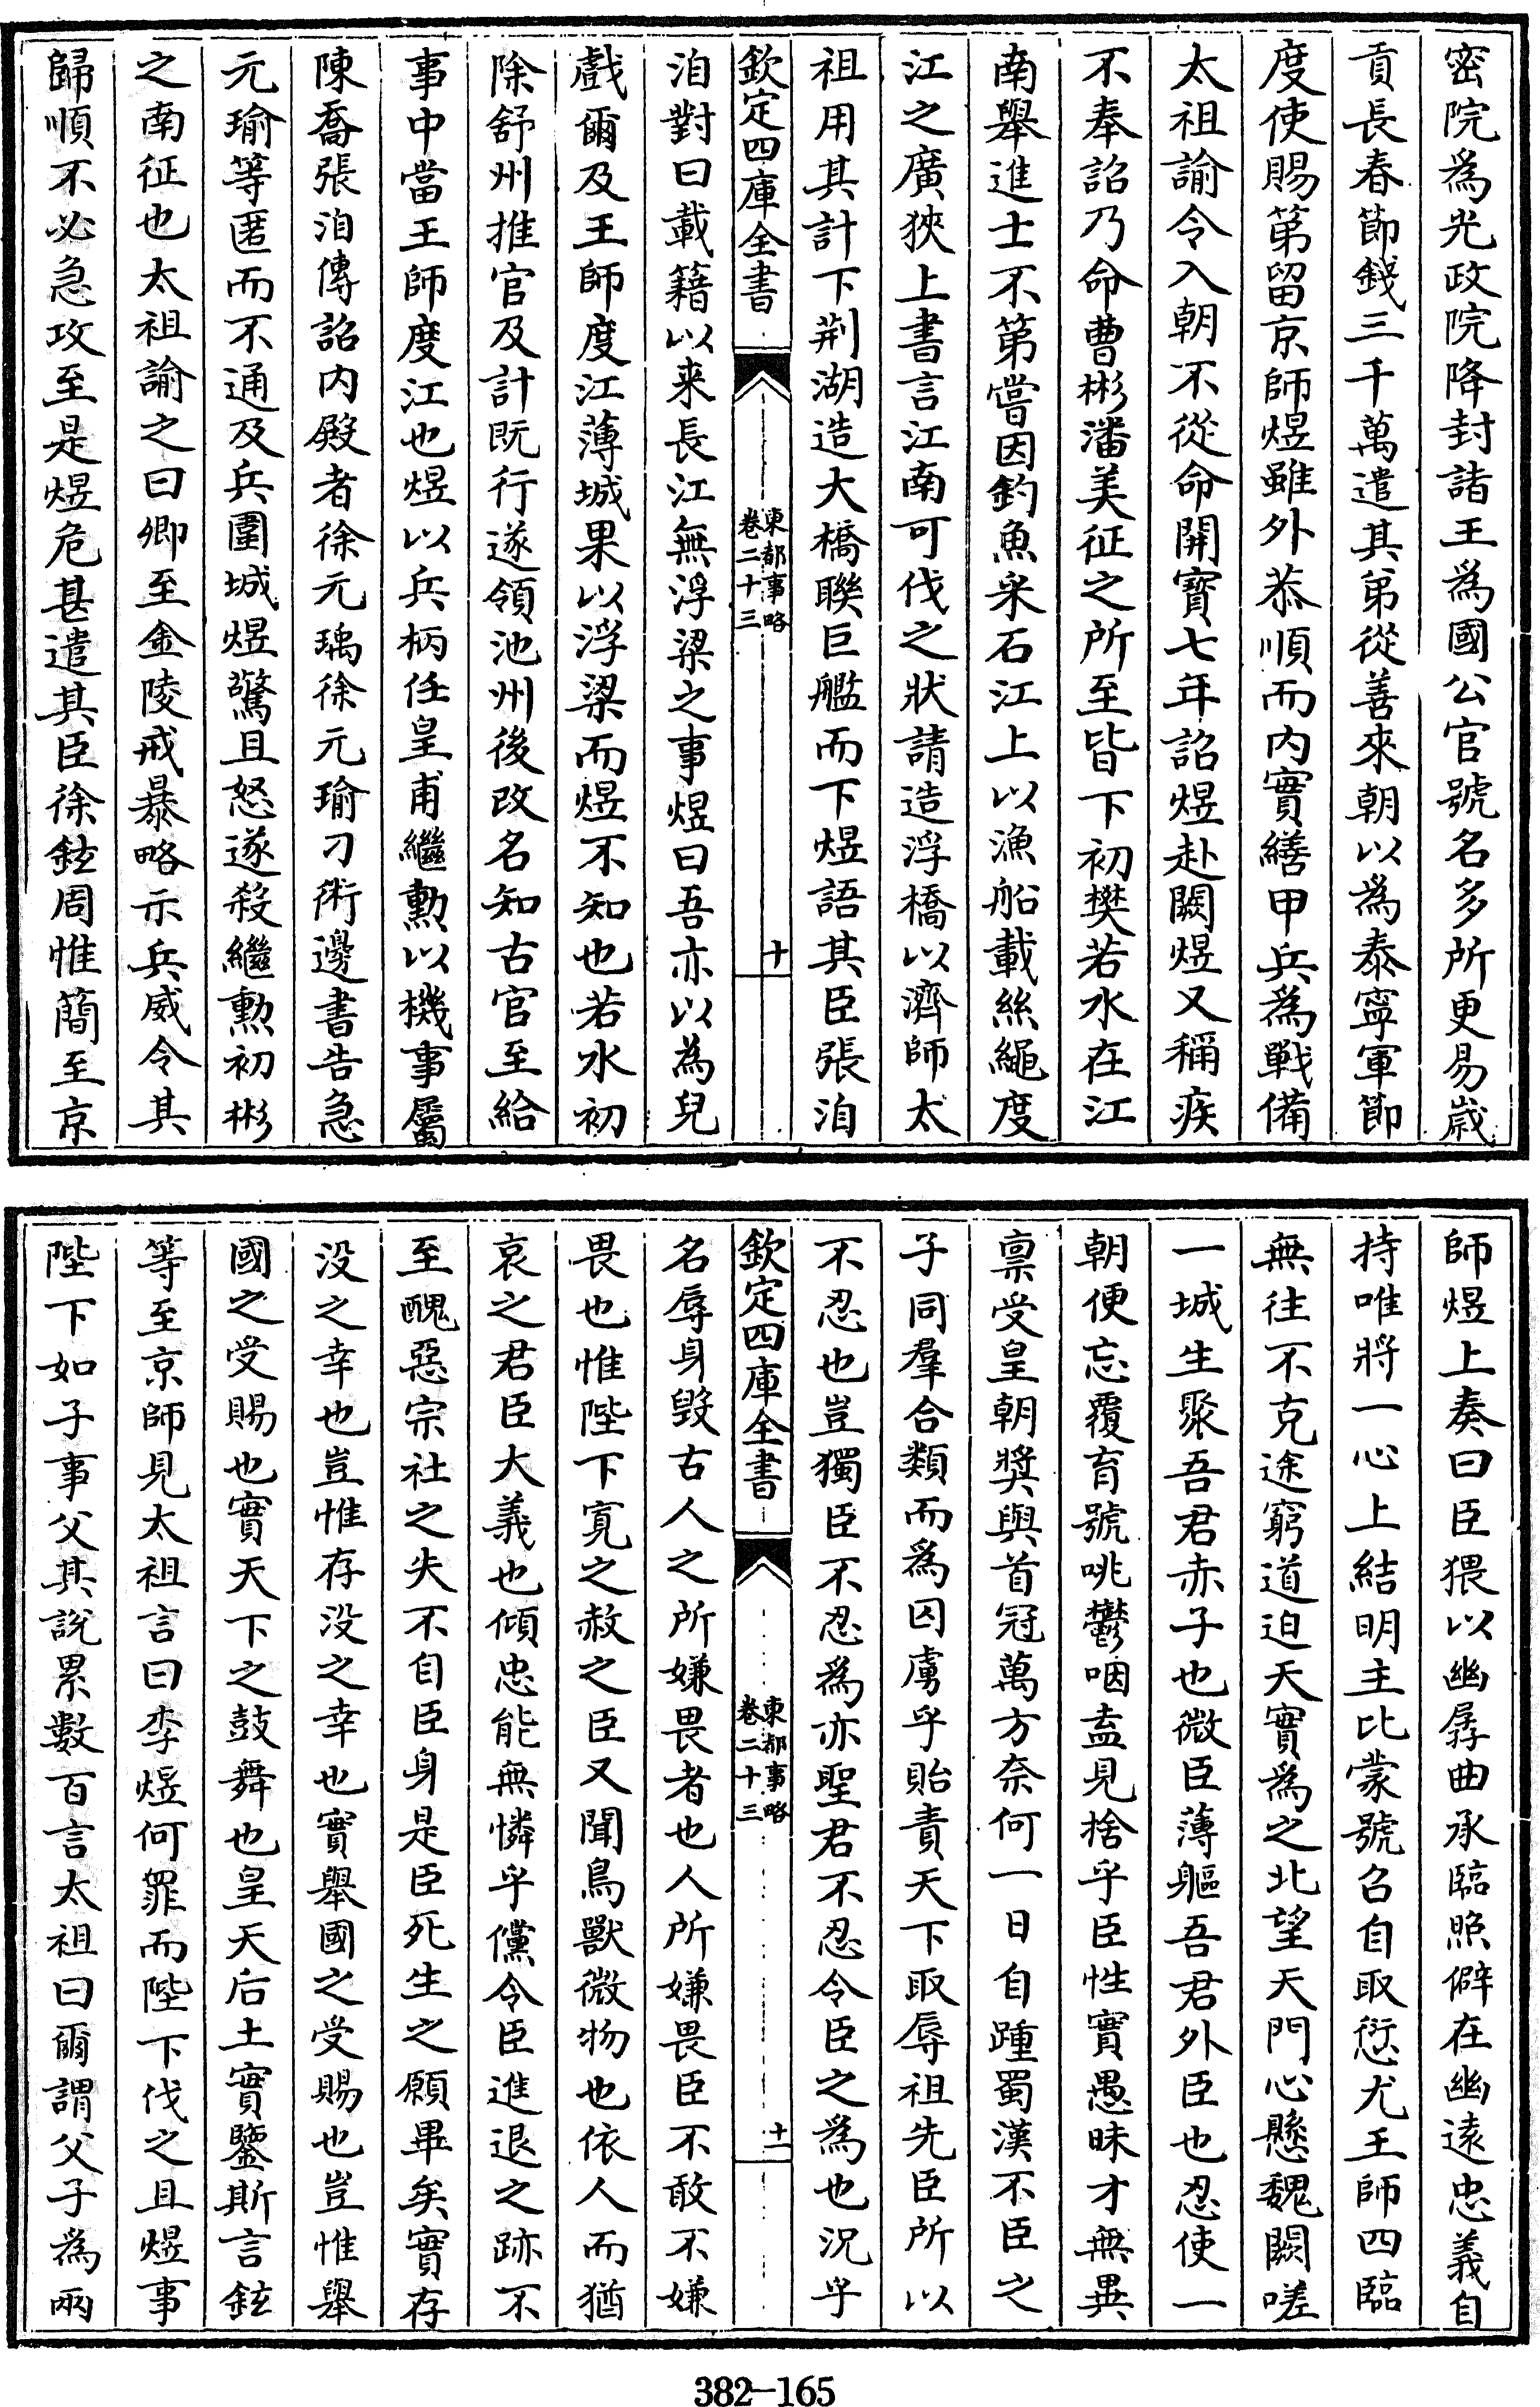 密院爲光政院降封諸王爲國公官號名多所更易歲
貢長春節錢三千萬遣其弟從善來朝以爲泰寧軍節
度使賜第留京師煜雖外恭順而内實繕甲兵爲戰備
太祖諭令入朝不從命開寳七年詔煜赴闕煜又稱疾
不奉詔乃命曹彬潘美征之所至皆下初樊若水在江
南舉進士不第嘗因釣魚采石江上以漁船載絲繩度
江之廣狹上書言江南可伐之狀請造浮橋以濟師太
祖用其計下荆湖造大橋聯巨艦而下煜語其臣張洎
欽定四庫全書
東都事略
卷二十三
十
洎對曰載籍以來長江無浮梁之事煜曰吾亦以為兒
戲爾及王師度江薄城果以浮梁而煜不知也若水初
除舒州推官及計既行遂領池州後改名知古官至給
事中當王師度江也煜以兵柄任皇甫繼勲以機事屬
陳喬張洎傳詔内殿者徐元瑀徐元瑜刁衎邊書告急
元瑜等匿而不通及兵圍城煜驚且怒遂殺繼勲初彬
之南征也太祖諭之曰卿至金陵戒暴略示兵威令其
歸順不必急攻至是煜危甚遣其臣徐鉉周惟簡至京
師煜上奏曰臣猥以幽孱曲承臨照僻在幽遠忠義自
持唯將一心上結明主比蒙號召自取愆尤王師四臨
無往不克途窮道迫天實爲之北望天門心懸魏闕嗟
一城生聚吾君赤子也微臣薄軀吾君外臣也忍使一
朝便忘覆育號咷鬱咽盍見捨乎臣性實愚昧才無異
禀受皇朝奬與首冠萬方奈何一日自踵蜀漢不臣之
子同羣合類而爲囚虜乎貽責天下取辱祖先臣所以
不忍也豈獨臣不忍爲亦聖君不忍令臣之為也況乎
欽定四庫全書
東都事略
卷二十三
十一
名辱身毀古人之所嫌畏者也人所嫌畏臣不敢不嫌
畏也惟陛下寛之赦之臣又聞鳥獸微物也依人而猶
哀之君臣大義也傾忠能無憐乎儻令臣進退之跡不
至醜惡宗社之失不自臣身是臣死生之願畢矣實存
没之幸也豈惟存没之幸也實舉國之受賜也豈惟舉
國之受賜也實天下之鼓舞也皇天后土實鑒斯言鉉
等至京師見太祖言曰李煜何罪而陛下伐之且煜事
陛下如子事父其說累數百言太祖曰爾謂父子為兩
382-165